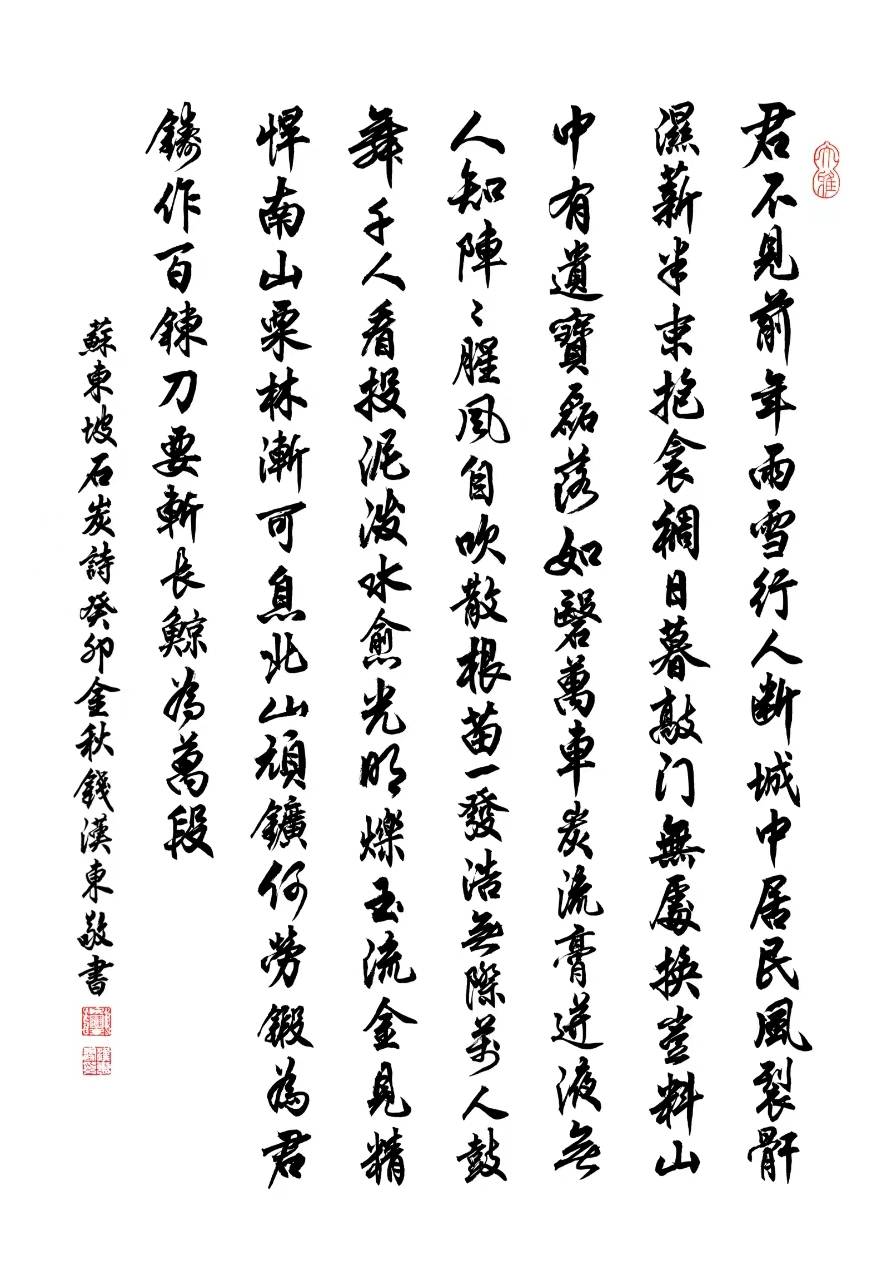 君不見前年雨雪行人断城中居民風裂骭
濕薪半束抱衾裯日暮敲门無處換豈料山
中有遺寶磊落如磬萬車炭流膏迸液無
人知陣〻腥風自吹散根苗一發浩無際萬人鼓
舞千人看投泥潑水愈光明爍玉流金見精
悍南山栗林漸可息北山頑鑛何勞鍛為君
鑄作百鍊刀要斬長鯨為萬段
蘇東坡石炭詩癸卯金秋錢漢東敬書
大雅